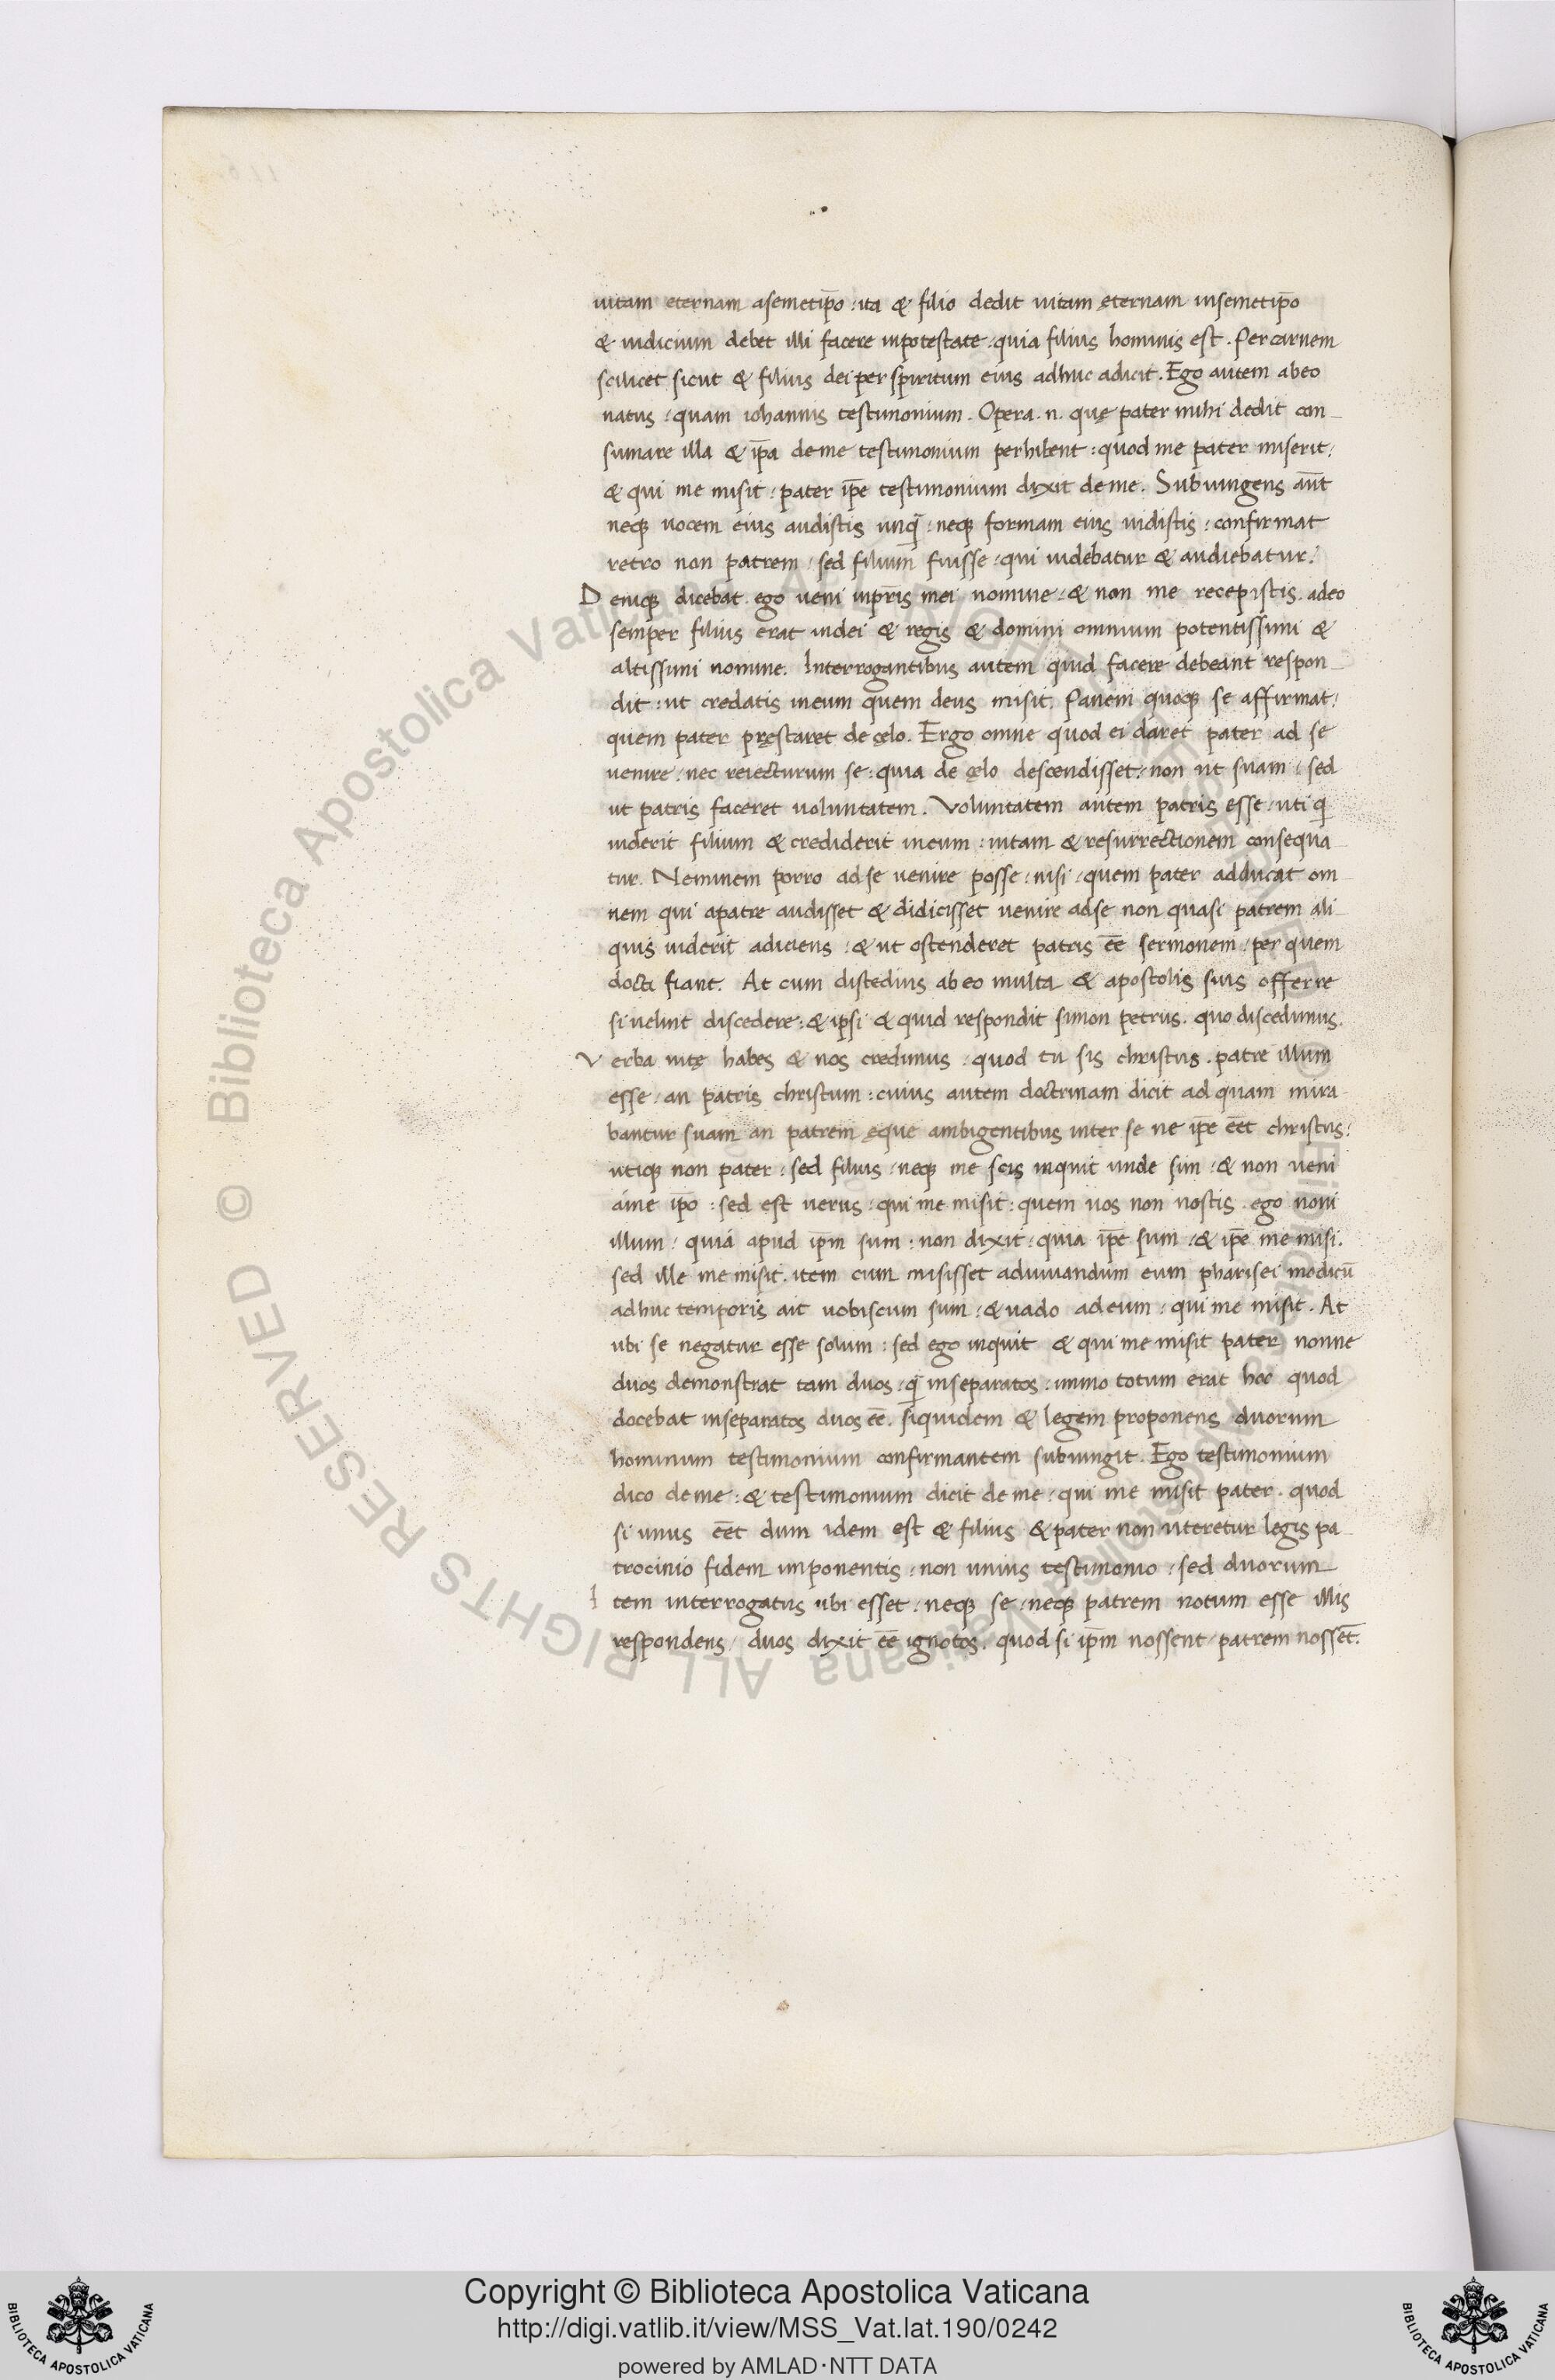 uitam eternam asemetip̄o : ita & filio dedit uitam ęternam insemetip̄o
& iudicium debet illi facere inpotestate : quia filius hominis est . Per carnem
scilicet sicut & filius dei per spiritum eius adhuc adicit . Ego autem abeo
natus : quam iohannis testimonium . Opera . n . quę pater mihi dedit con_
sumare illa & ip̄a deme testimonium perhibent : quod me pater miserit /
& qui me misit : pater ip̄e testimonium dixit deme . Subiungens aūt
neqꝫ uocem eius audistis unq̄ : neqꝫ formam eius uidistis : confirmat
retro non patrem / sed filium fuisse : qui uidebatur & audiebatur :
D eniqꝫ dicebat . ego ueni inpr̄is mei nomine : & non me recepistis . adeo
semper filius erat indei & regis & domini omnium potentissimi &
altissimi nomine . Interrogantibus autem quid facere debeant respon_
dit : ut credatis ineum quem deus misit . Panem quoqꝫ se affirmat /
quem pater pręstaret de ęlo . Ergo omne quod ei daret pater ad se
uenire : nec reiecturum se : quia de ęlo descendisset : non ut suam : sed
ut patris faceret uoluntatem . Voluntatem autem patris esse : uti q̄
uiderit filium & crediderit ineum : uitam & resurrectionem consequa
tur . Neminem porro adse uenire posse : nisi : quem pater adducat om_
nem qui apatre audisset & didicisset uenire adse non quasi patrem ali_
quis uiderit adiciens : & ut ostenderet patris ēē sermonem : per quem
docti fiant . At cum discedius ab eo multa & apostolis suis offerre
si uelint discedere : & ipsi & quid respondit simon petrus . quo discedimus .
V erba uitę habes & nos credimus : quod tu sis christus . patre illum
esse : an patris christum : cuius autem doctrinam dicit ad quam mira
bantur suam an patrem ęque ambigentibus inter se ne ip̄e ēēt christus :
utiqꝫ non pater : sed filius : neqꝫ me scis inquit unde sim : & non ueni
ame ip̄o : sed est uerus : qui me misit : quem uos non nostis . ego noui
illum : quia apud ip̄m sum : non dixit : quia ip̄e sum : & ip̄e me misi .
sed ille me misit . item cum misisset adiuuandum eum pharisei modicū
adhuc temporis ait uobiscum sum : & uado adeum : qui me misit . At
ubi se negatur esse solum : sed ego inquit & qui me misit pater nonne
duos demonstrat tam duos : q̄ inseparatos : immo totum erat hoc quod
docebat inseparatos duos ēē . siquidem & legem proponens duorum
hominum testimonium confirmantem subiungit . Ego testimonium
dico deme : & testimonium dicit de me : qui me misit pater . quod
si unus ēēt dum idem est & filius & pater non uteretur legis pa_
trocinio fidem imponentis : non unius testimonio : sed duorum
I tem interrogatus ubi esset : neqꝫ se : neqꝫ patrem notum esse illis
respondens / duos dixit ēē ignotos . quod si ip̄m nossent : patrem nossēt .
Copyright © Biblioteca Apostolica Vaticana
http://digi.vatlib.it/view/MSS_Vat.lat.190/0242
powered by AMLAD·NTT DATA